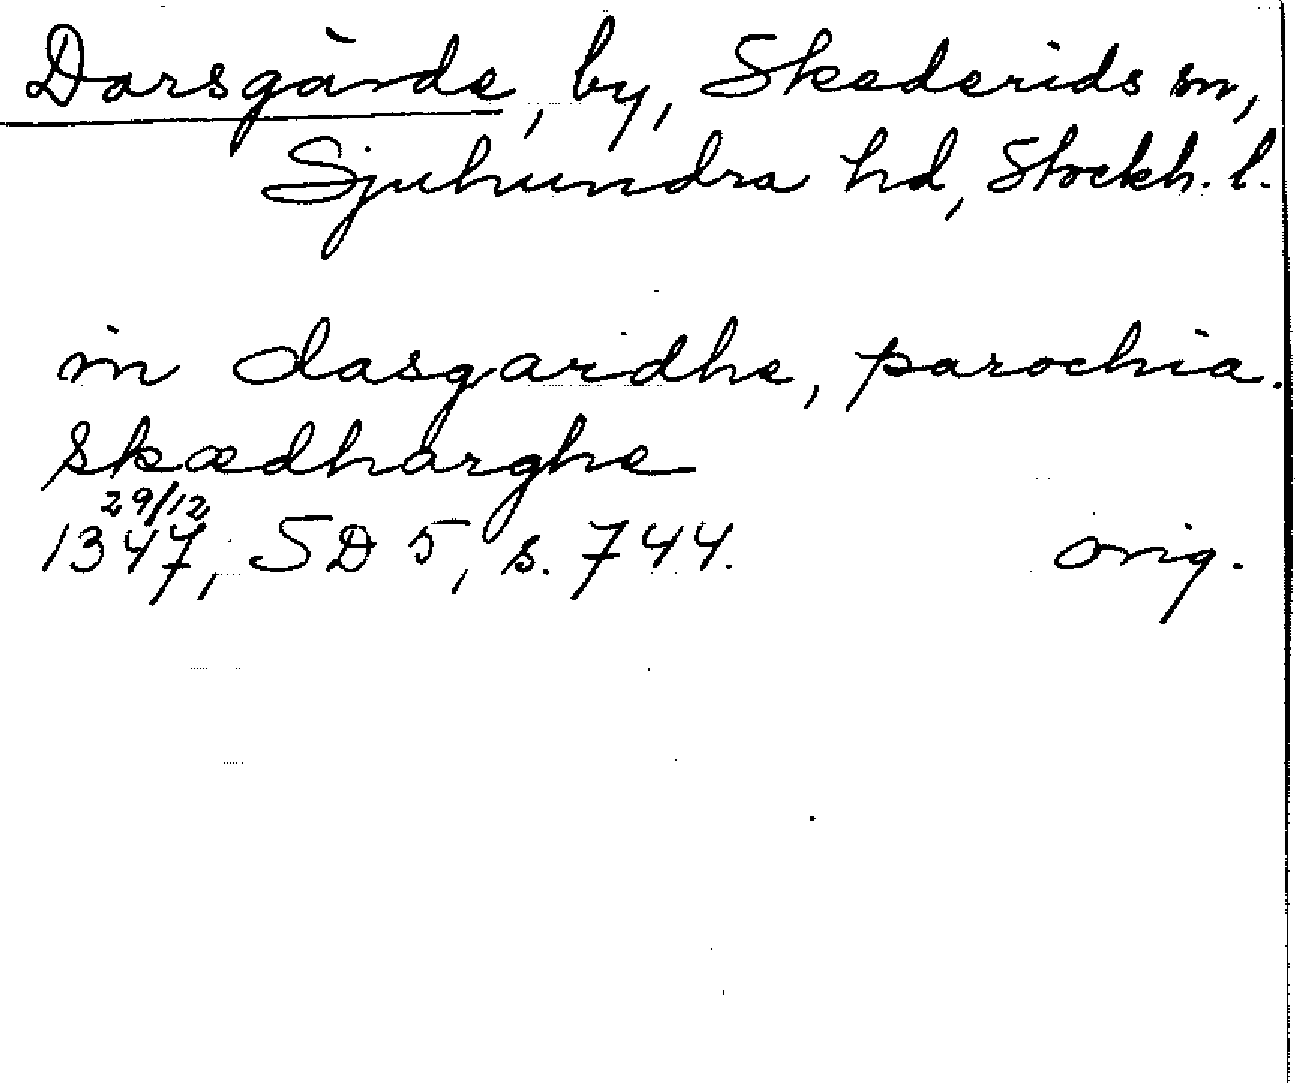 Darsgärde, by, Skederids sn,
Sjuhundra hd, Stockh. l.
in dasgaridhe, parochia.
skædharghe
29/12
1347, SD 5, s. 744. orig.